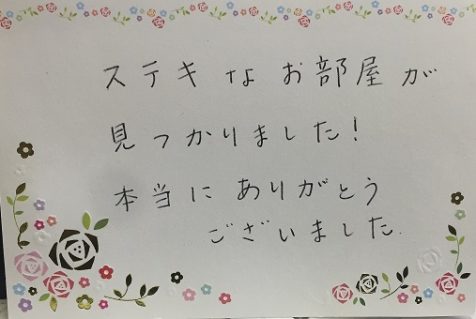 ステキなお部屋が
見つかりました!
本当にありがとう
ございました.